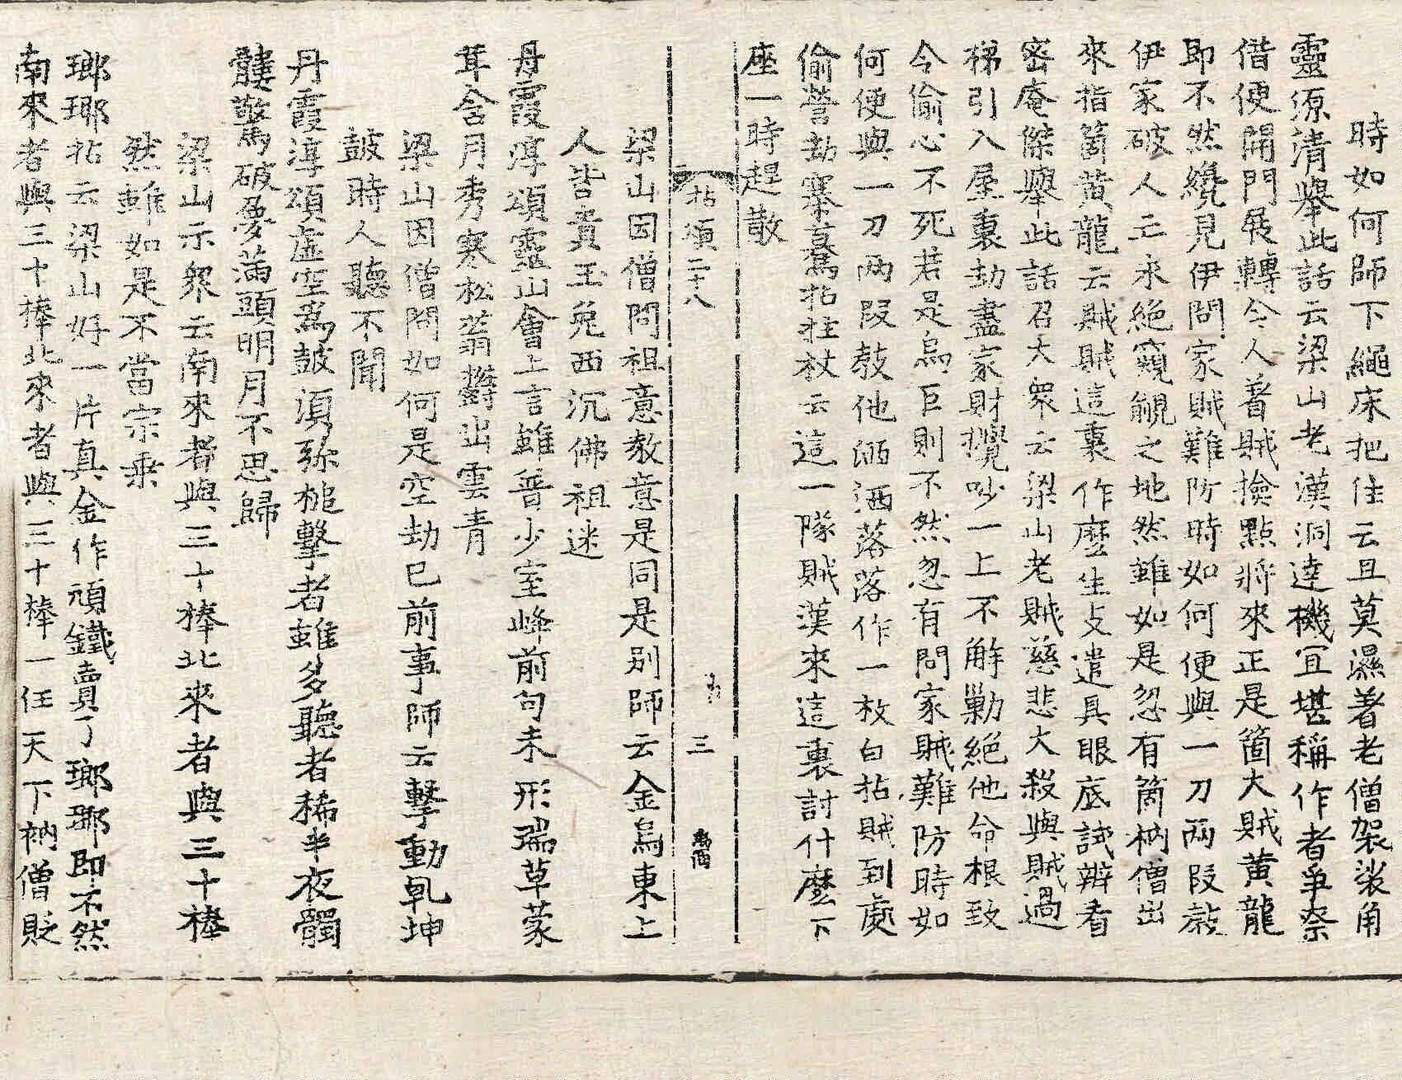 時如何師下繩床把住云且莫濕著老僧袈裟角
靈源清舉此話云梁山老漢洞達機宜堪稱作者爭奈
借便開門展轉令人著賊撿點將來正是箇大賊黃龍
即不然纔見伊問家賊難防時如何便與一刀兩段敎
伊家破人亡永絕窺覦之地然雖如是忽有箇衲僧出
來指箇黃龍云賊賊這裏作麽生支遣具眼底試辨看
密庵傑舉此話召大眾云梁山老賊慈悲大殺與賊過
梯引入屋裏劫盡家財攪吵一上不解勦絕他命根致
令偷心不死若是烏巨則不然忽有問家賊難防時如
何便與一刀兩段敎他洒洒落落作一枚白拈賊到處
偷營劫寨驀拈拄杖云這一隊賊漢來這裏討什麽下
座一時趕散
拈頌二十八
三
梁山因僧問祖意敎意是同是別師云金烏東上
人皆貴玉兔西沉佛祖迷
丹霞淳頌靈山會上言雖普少室峰前句未形瑞草蒙
茸含月秀寒松蓊鬱出雲青
梁山因僧問如何是空劫已前事師云擊動乹坤
皷時人聽不聞
丹霞淳頌虛空爲皷湏弥槌擊者雖多聽者稀半夜髑
髏驚破夢滿頭明月不思歸
梁山示眾云南來者與三十棒北來者與三十棒
然雖如是不當宗乘
瑯瑘拈云梁山好一片真金作頑鐵賣了瑯瑘即不然
南來者與三十棒北來者與三十棒一任天下衲僧貶